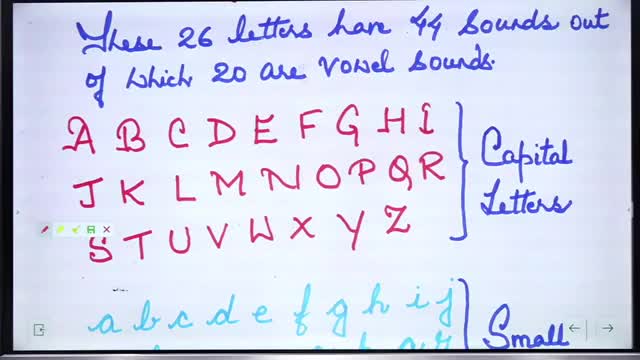 These 26 letters have 44 sounds out
of which 20 are vowel sounds.
A B C D E F G H I
J K L M N O P Q R
S T U V W X Y Z
Capital
Letters
a b c d e f g h i j
Small